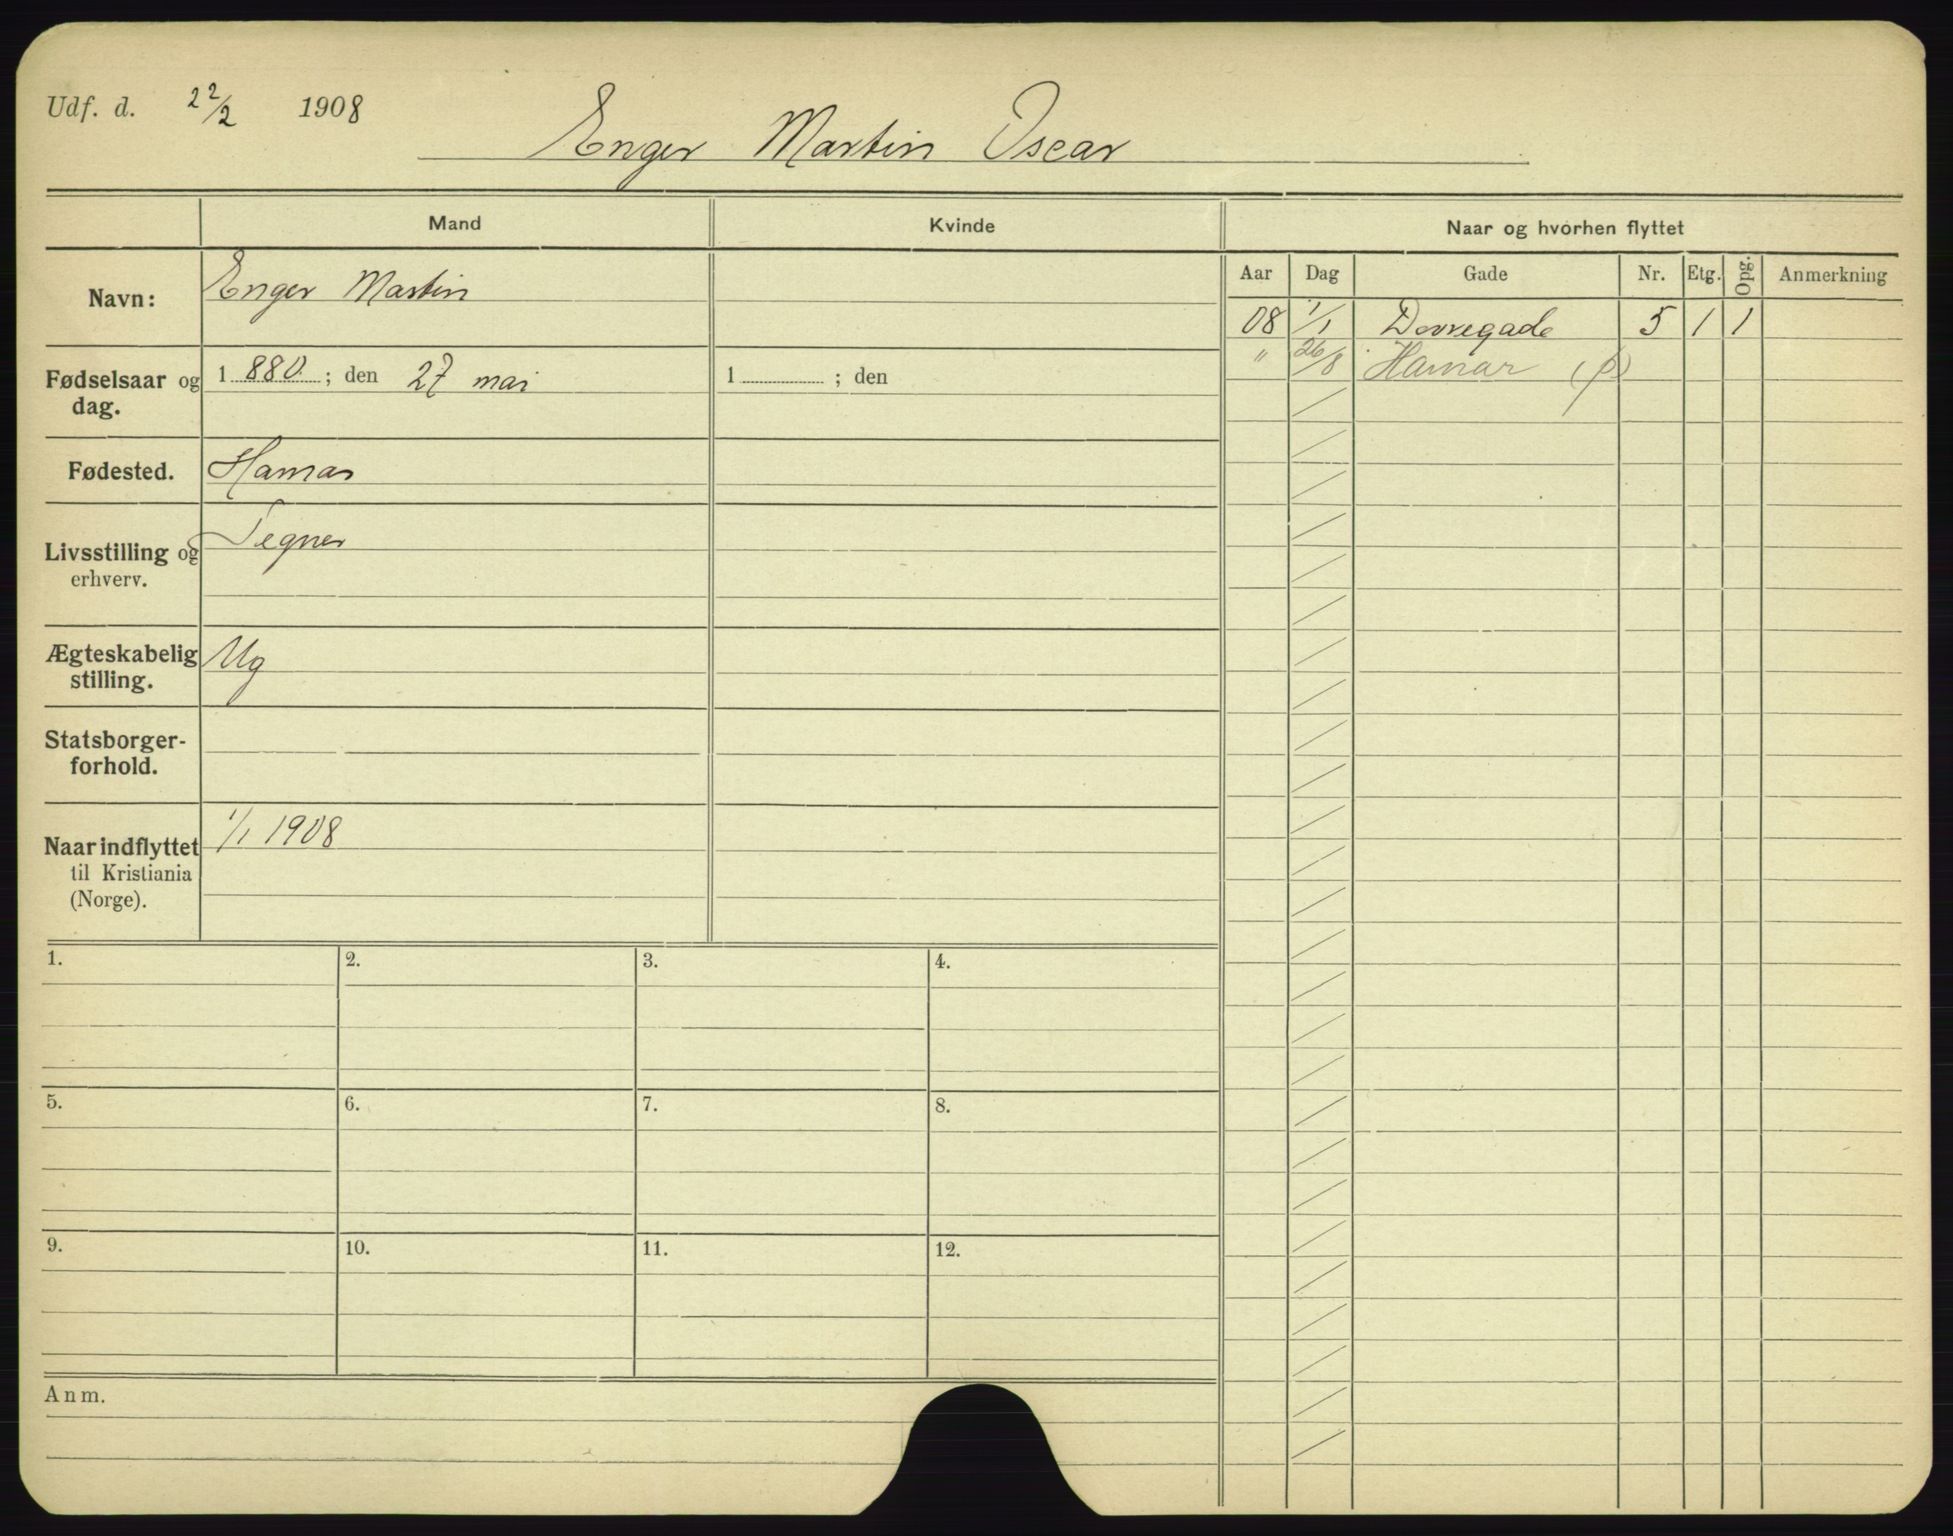 Udf. d. 22/2 1908
Enger Martin Oscar
Mand Kvinde Naar og hvorhen flyttet
Aar Dag Gade Nr. Etg. Opg. Anmerkning
Navn: Enger Martin
08 1/1 Dovregade 5 1 1
" 26/8 Hamar (p)
Fødselsaar og 1 880 ; den 27 mai 1 ; den
dag.
Fødested. Hamar
Livsstilling og Tegner
erhverv.
Ægteskabelig Ug
stilling.
Statsborger-
forhold.
Naar indflyttet 1/1 1908
til Kristiania
(Norge).
1. 2. 3. 4.
5. 6. 7. 8.
9. 10. 11. 12.
Anm.